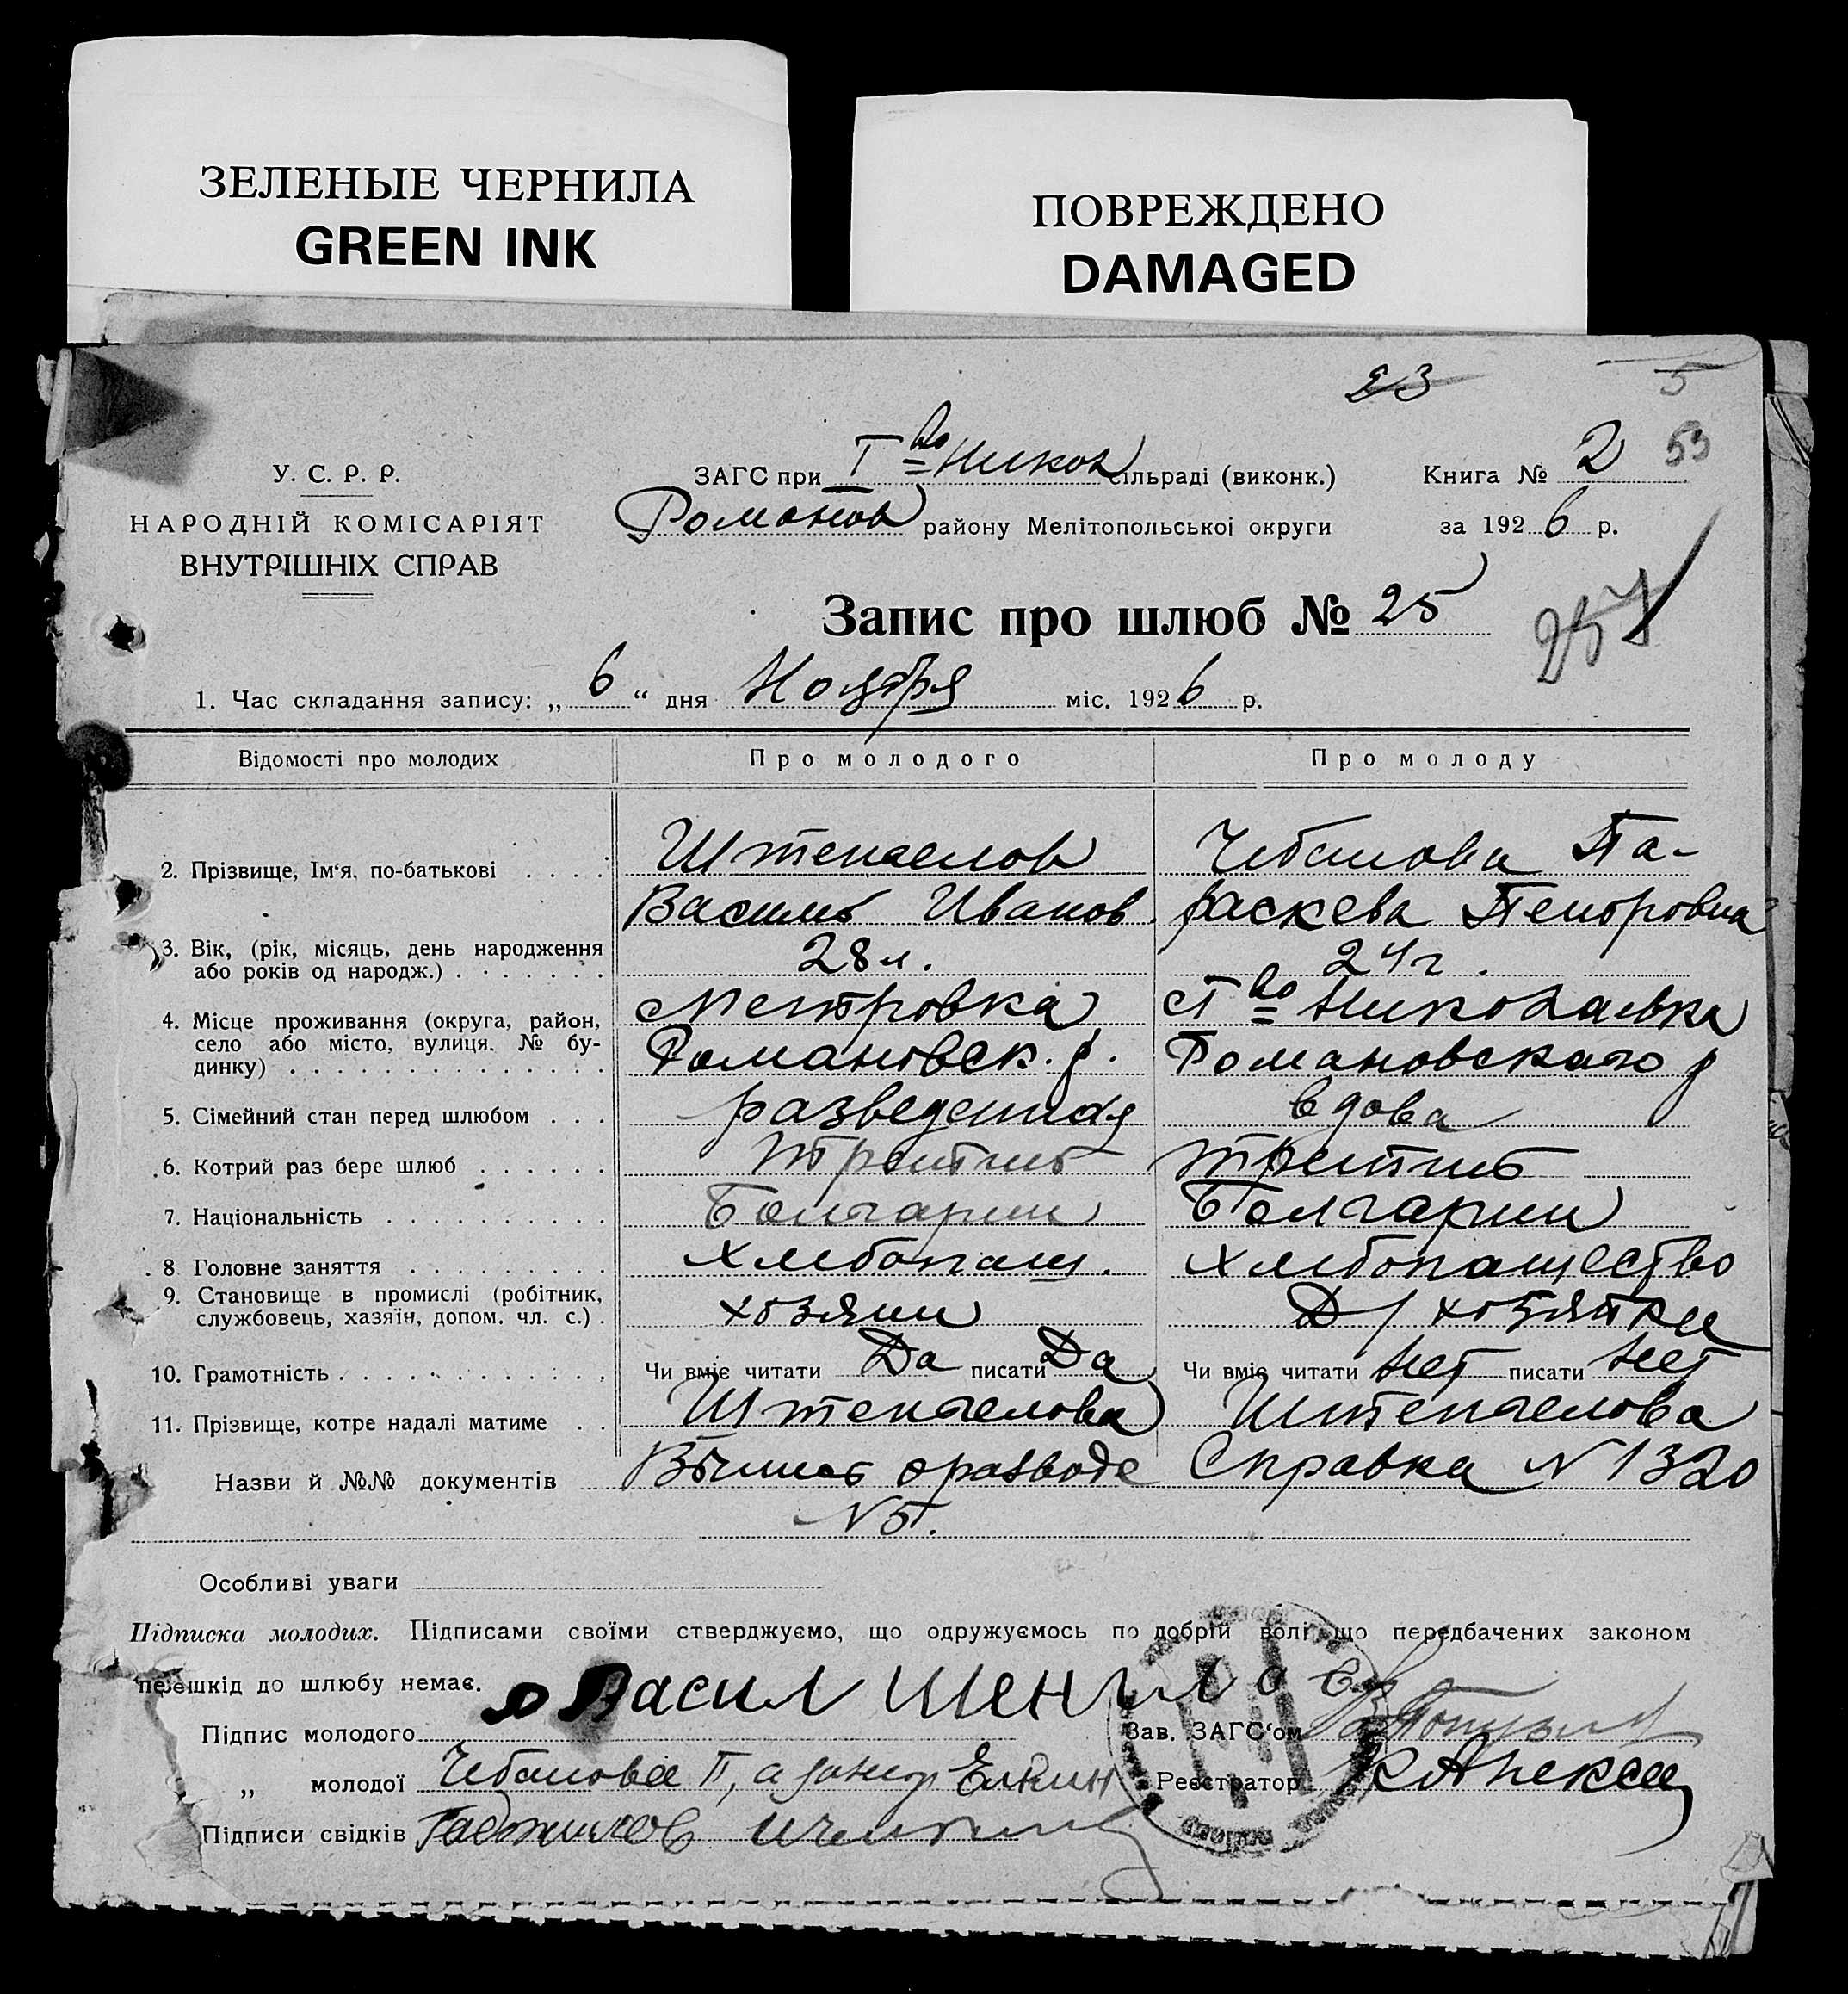 ЗЕЛЕНЫЕ ЧЕРНИЛА
GREEN INK
ПОВРЕЖДЕНО
DAMAGED
23 5
У. С. Р. Р.
НАРОДНІЙ КОМІСАРІЯТ
ВНУТРІШНІХ СПРАВ
ЗАГС при Г во Никол сільраді (виконк.) Книга № 2 53
Романов району Мелітопольської округи за 1926 р.
Запис про шлюб № 25
257
1. Час складання запису: „ 6 “ дня Ноября міс. 1926 р.
Відомості про молодих Про молодого Про молоду
2. Прізвище, Ім‘я, по-батькові . . . . Чебанова Па-
Василь Иванов. раскева
3. Вік, (рік, місяць, день народження або років од народж.) . . . . . . . 28 л. 24 г.
4. Місце проживання (округа, район, село або місто, вулиця, № будинку) . . . . . . . . . . . . . . во Николаевка
Романовск. р. Романовского р
5. Сімейний стан перед шлюбом . . . разведенная вдова
6. Котрий раз бере шлюб . . . . . . третий третий
7. Національність . . . . . . . . . . Болгарин Болгарин
8 Головне заняття . . . . . . . . . Хлебопаш. Хлебопашество
9. Становище в промислі (робітник, службовець, хазяїн, допом. чл. с.) . хозяин Д/ хозяйки
10. Грамотність . . . . . . . . . . . . Чи вміє читати Да писати Да Чи вміє читати нет писати нет
11. Прізвище, котре надалі матиме . .
Назви й №№ документів о разводе Справка N 1320
N 5.
Особливі уваги
Підписка молодих. Підписами своїми стверджуємо, що одружуємось по добрій волі що передбачених законом
перешкід до шлюбу немає. Васил
Підпис молодого Зав. ЗАГС‘ом
„ молодої Чебанова П, а Реєстратор
Підписи свідків